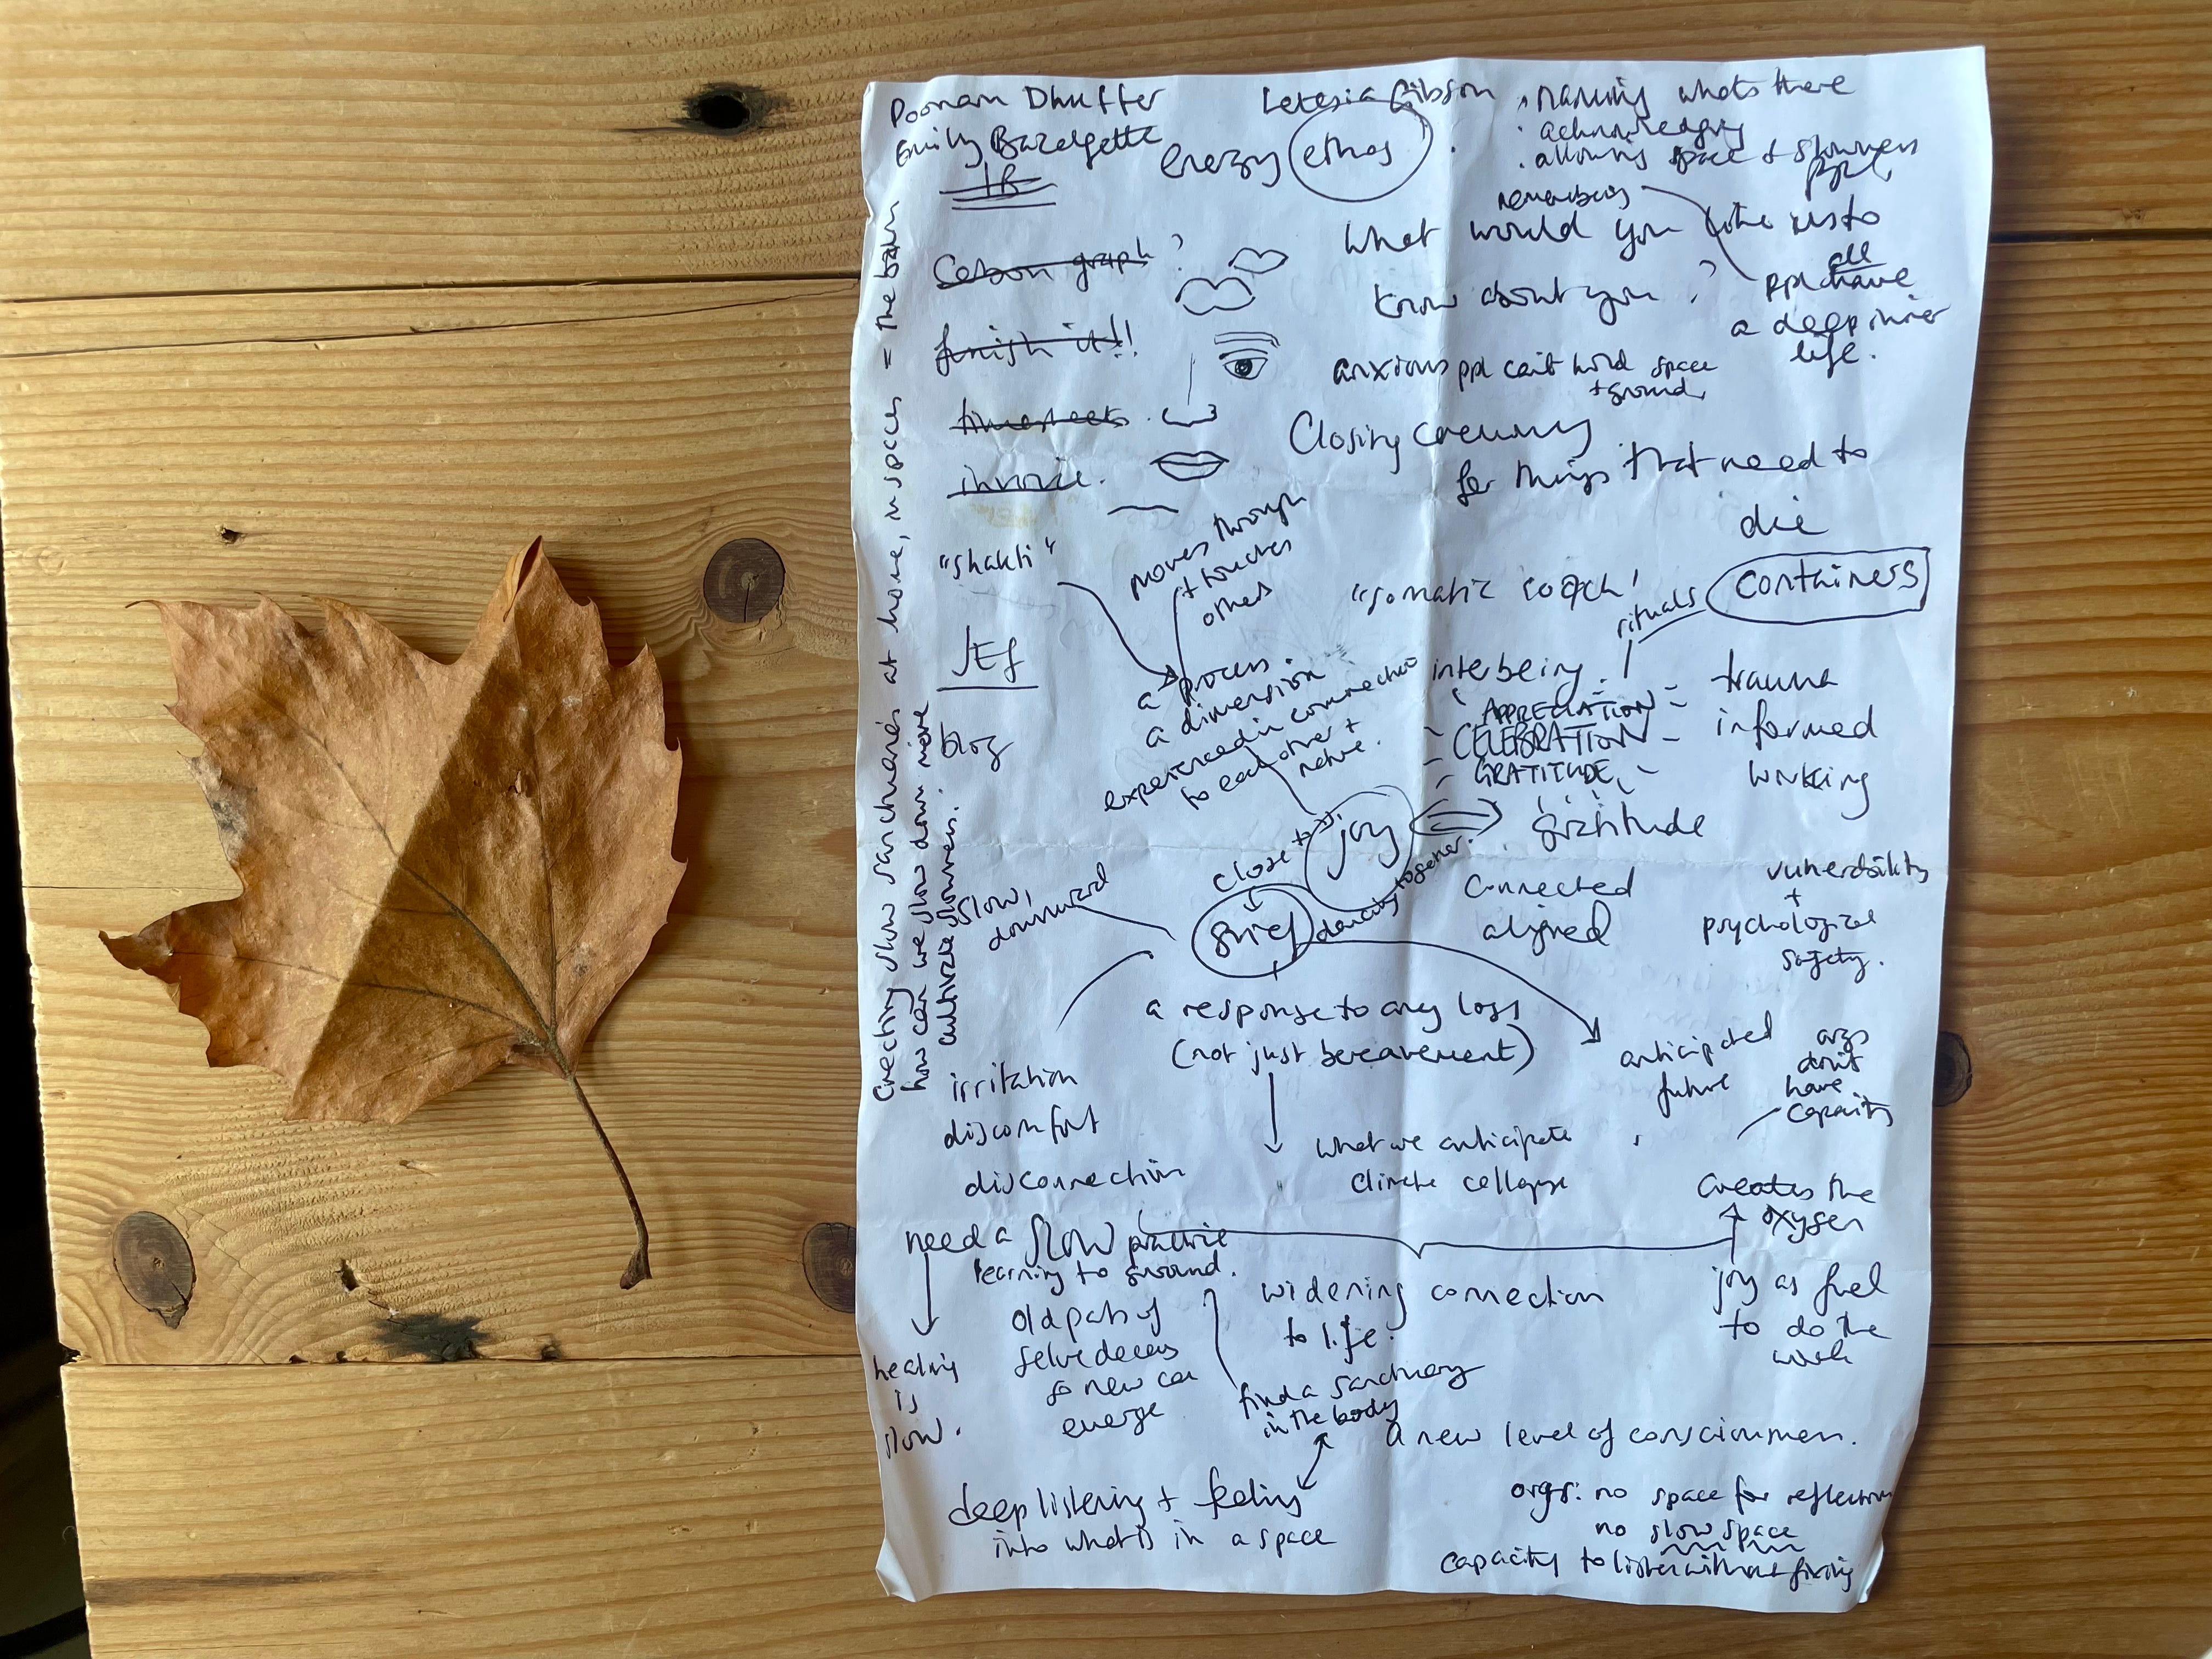 Poonam Dhuffer
Emily Bazalgette
Letesia Gibson
energy ethos
. naming whats there
. acknowledging
. allowing space + slowness
ppl
remembering
ppl all have
a deep inner
life.
Carbon graph ?
finish it!!
timesheets.
invoice.
What would you like us to
know about you ?
anxious ppl can't hold space
+ ground
Closing ceremony
for things that need to
die
"shakti"
moves through
+ touches
others
"somatic coach"
rituals
containers
JEF
blog
a process
a dimension
experienced in connection
to each other +
nature.
interbeing
APPRECIATION
CELEBRATION
GRATITUDE
trauma
informed
working
joy
gratitude
close to
dancing together.
grief
slow,
downward
connected
aligned
vunerability
+
psychological
safety.
a response to any loss
(not just bereavement)
irritation
discomfort
disconnection
anticipated
future
orgs
don't
have
capacity
what we anticipate
climate collapse
creates the
oxygen
joy as fuel
to do the
work
need a slow practice
learning to ground.
healing
is
slow.
old parts of
selve decay
so new can
emerge
widening connection
to life.
find a sanctuary
in the body
a new level of consciousness.
deep listening + feeling
into what is in a space
orgs: no space for reflection
no slow space
capacity to listen without fixing
creating slow sanctuaries at home, in spaces = the balm
how can we slow down more
cultivate slowness.